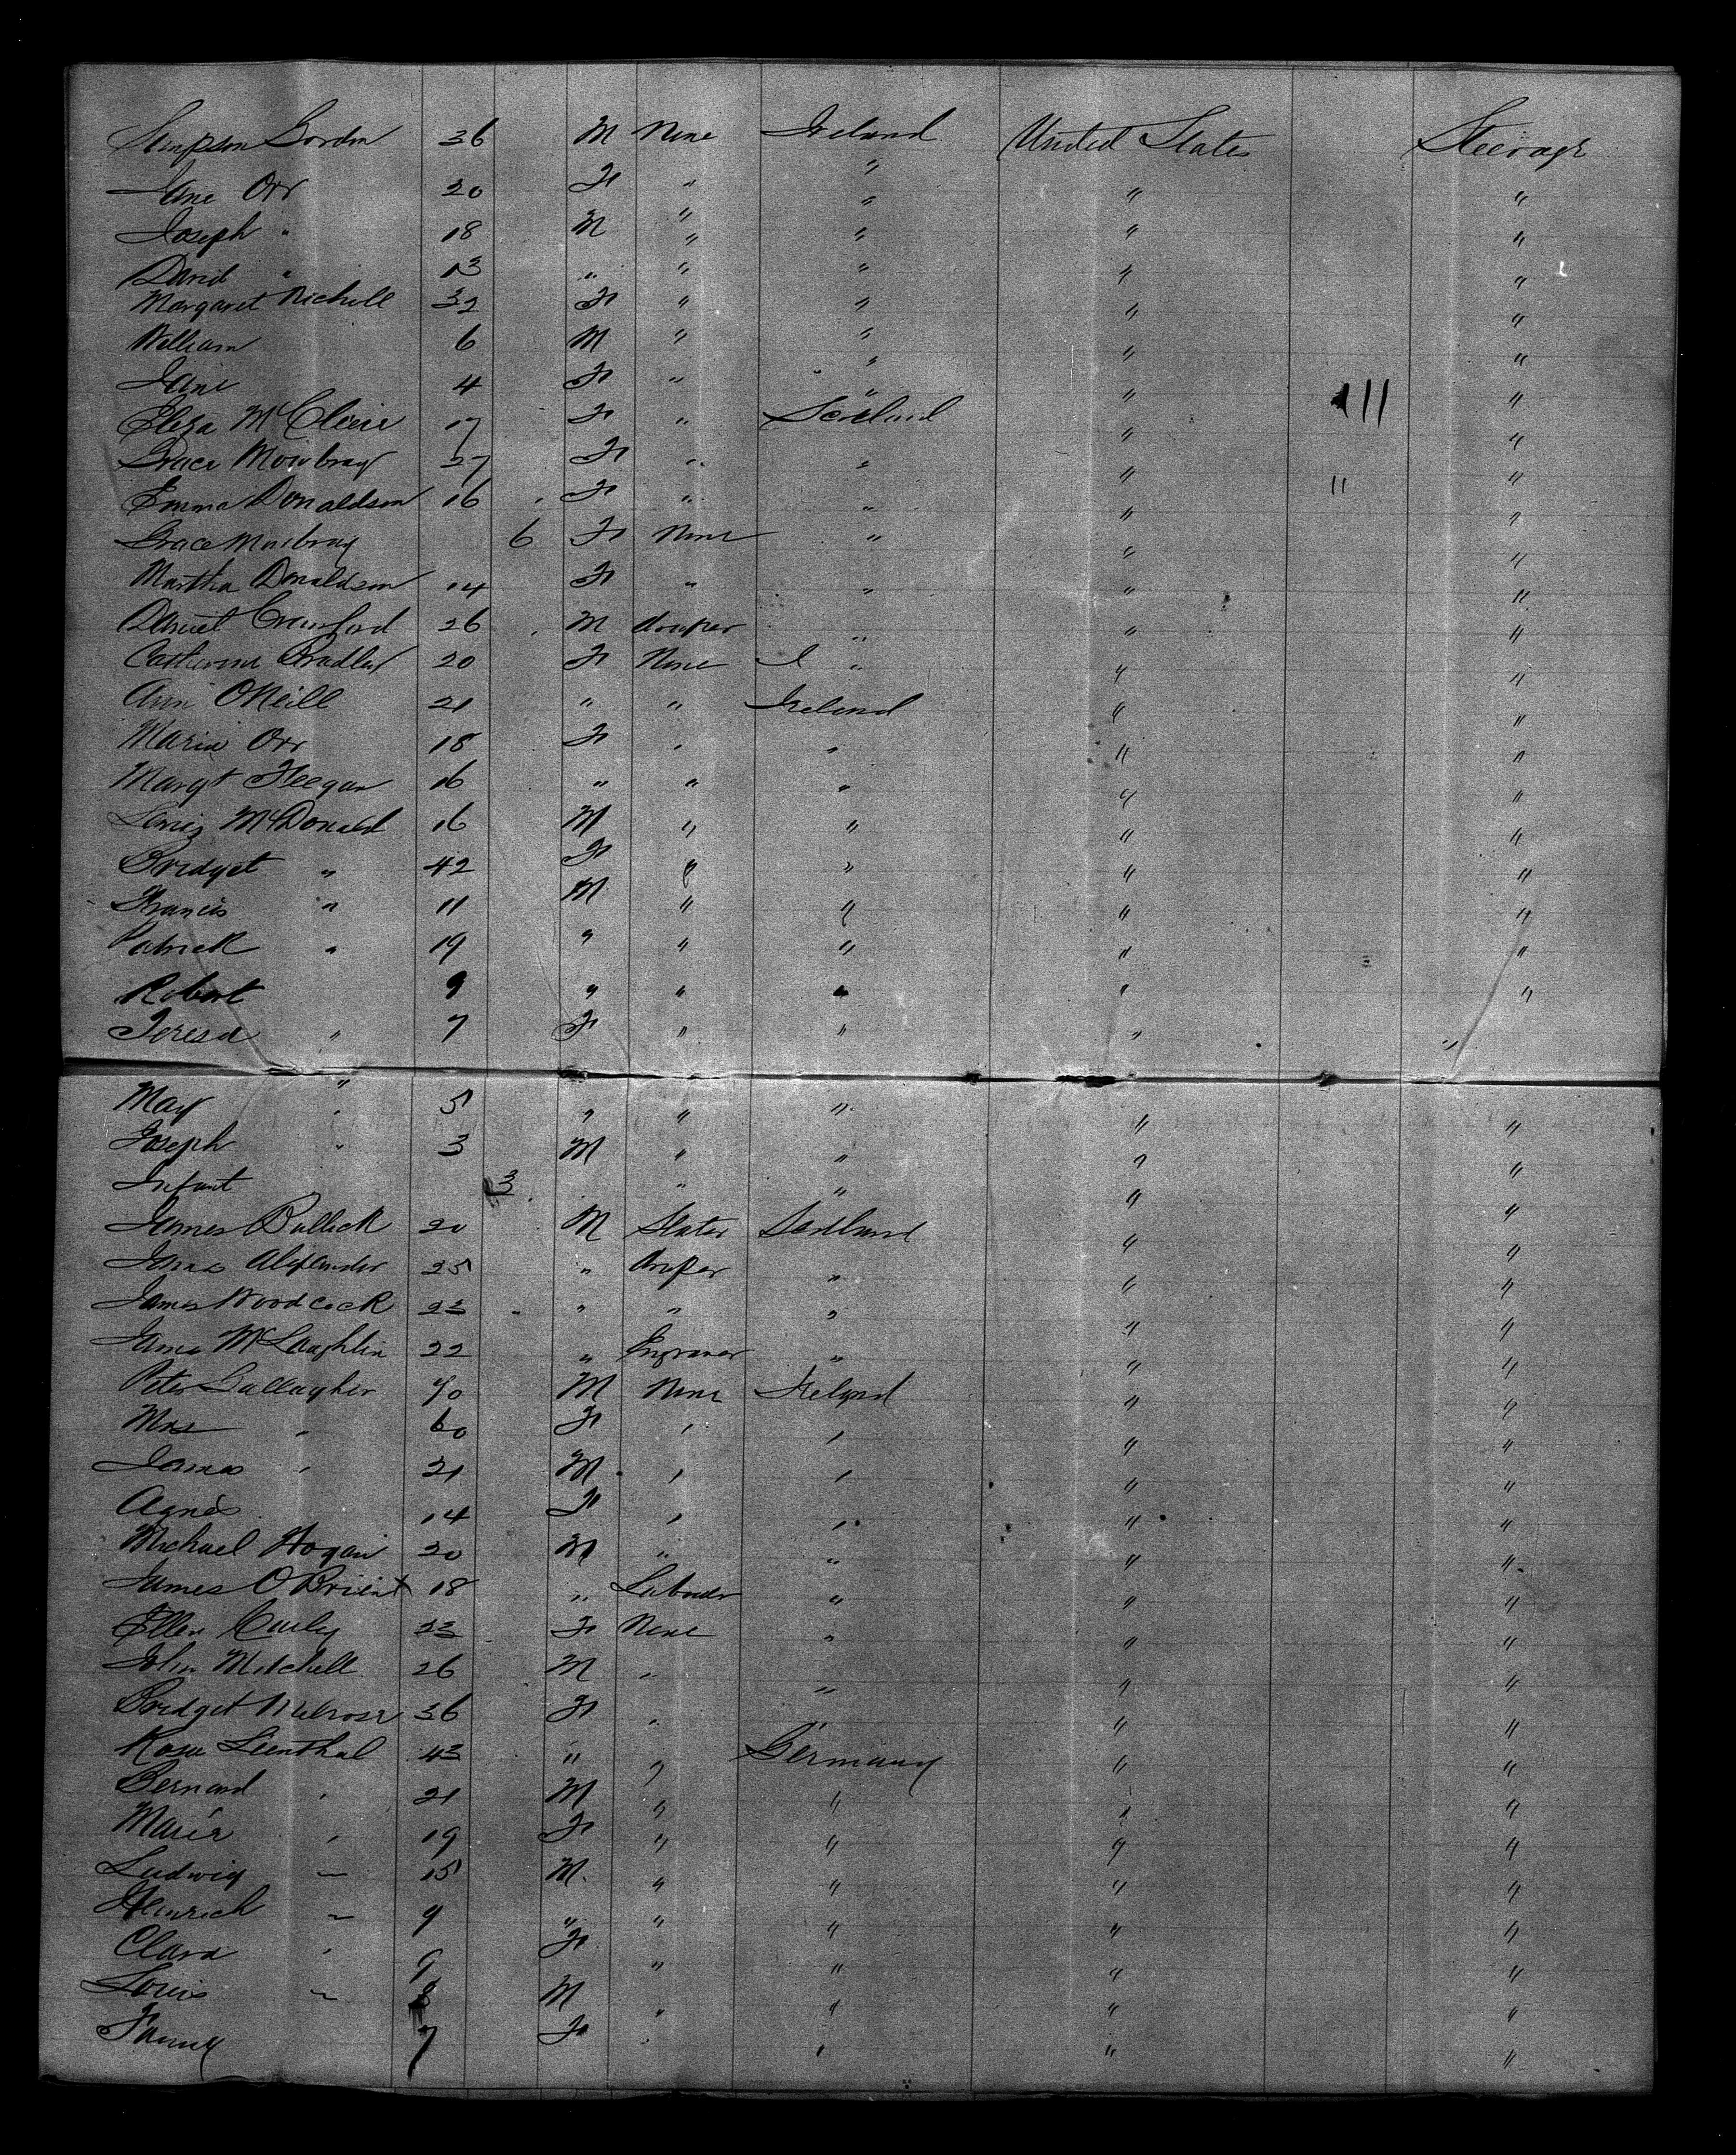 Simpson Gordon 36 M None Ireland United States Steerage
Jane Orr 20 F " " " "
Joseph " 18 M " " " "
David " 13 " " " " "
Margaret Nicholl 32 F " " " "
William 6 M " " " "
Jane 4 F " " " "
Eliza McClure 17 F " Scotland " "
Grace Mowbray 27 F " " " " "
Emma Donaldson 16 F " " " "
Grace Mowbray 6 F None " " "
Martha Donaldson 14 F " " " "
Daniel Crawford 26 M draper " " "
Catherine Bradley 20 F None I " " "
Ann O'Neill 21 " " Ireland " "
Maria Orr 18 F " " " "
Margt Feegan 16 " " " " "
McDonald 16 M " " " "
Bridget " 42 F " " " "
Francis " 11 M " " " "
Patrick " 19 " " " " "
Robert 9 " " " " "
Teresa " 7 F " " " "
May " 5 " " " " "
Joseph " 3 M " " " "
Infant 3 " " " "
James Bullick 20 M Slater Scotland " "
James Alexander 25 " draper " " "
James Woodcock 23 " " " " "
James McLaughlin 22 " Engraver " " "
Peter Gallagher 70 M None Ireland " "
Mrs " 60 F " " " "
James " 21 M " " " "
Agnes 14 F " " " "
Michael Hogan 20 M " " " "
James O'Brien 18 " Labourer " " "
Ellen Curley 23 F None " " "
John Mitchell 26 M " " " "
Bridget Melrose 36 F " " "
Rosa Leenthal 43 " " Germany " "
Bernard " 21 M " " " "
Marie " 19 F " " " "
Ludwig " 15 M " " " "
Heinrich " 9 " " " " "
Clara " 9 F " " " "
Louis " 8 M " " " "
Fanny 7 F " " "